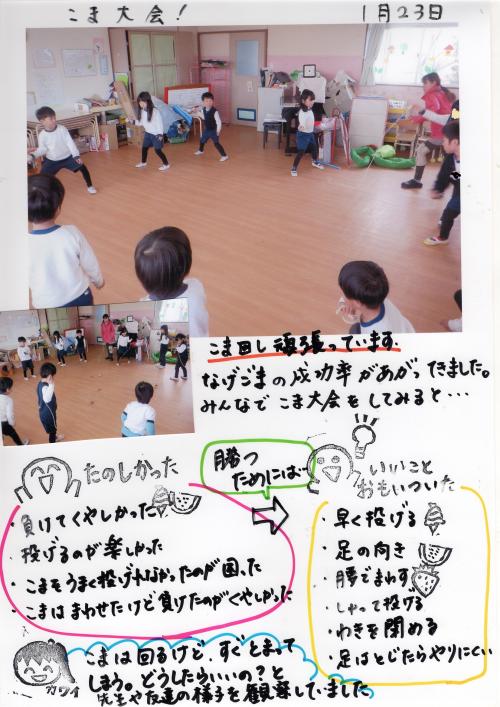 こま大会！ 1月23日
こま回し頑張っています。
なげごまの成功率があがってきました。
みんなで こま大会をしてみると・・・
たのしかった
・負けてくやしかった
・投げるのが楽しかった
・こまをうまく投げれなかったのが困った
・こまはまわせたけど負けたのがくやしかった
勝つ
ためには…
いいこと
おもいついた
・早く投げる
・足の向き
・腰でまわす
・しゃって投げる
・わきを閉める
・足はとじたらやりにくい
こまは回るけど、すぐとまって
しまう。どうしたらいいの？と
先生や友達の様子を観察していました
カワイ